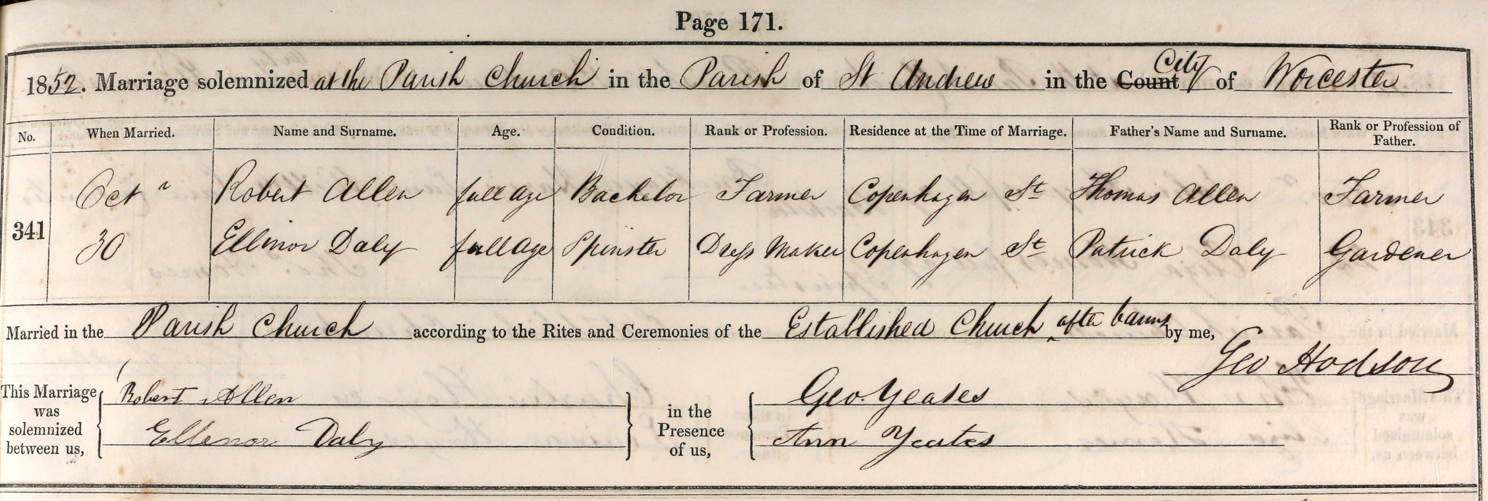 Page 171.
1852. Marriage solemnized at the Parish Church in the Parish of St Andrew in the County City of Worcester
No. When Married. Name and Surname. Age. Condition. Rank or Profession. Residence at the Time of Marriage. Father's Name and Surname. Rank or Profession of Father.
Oct r Robert Allen full age Bachelor Farmer Copenhagen St Thomas Allen Farmer
341
30 Ellenor Daly full age Spinster Dress Maker Copenhagen St Patrick Daly Gardener
Married in the Parish Church according to the Rites and Ceremonies of the Established Church after banns by me,
Geo Hodson
This Marriage was solemnized between us, Robert Allen in the Presence of us, Geo. Yeates
Ellenor Daly Ann Yeates